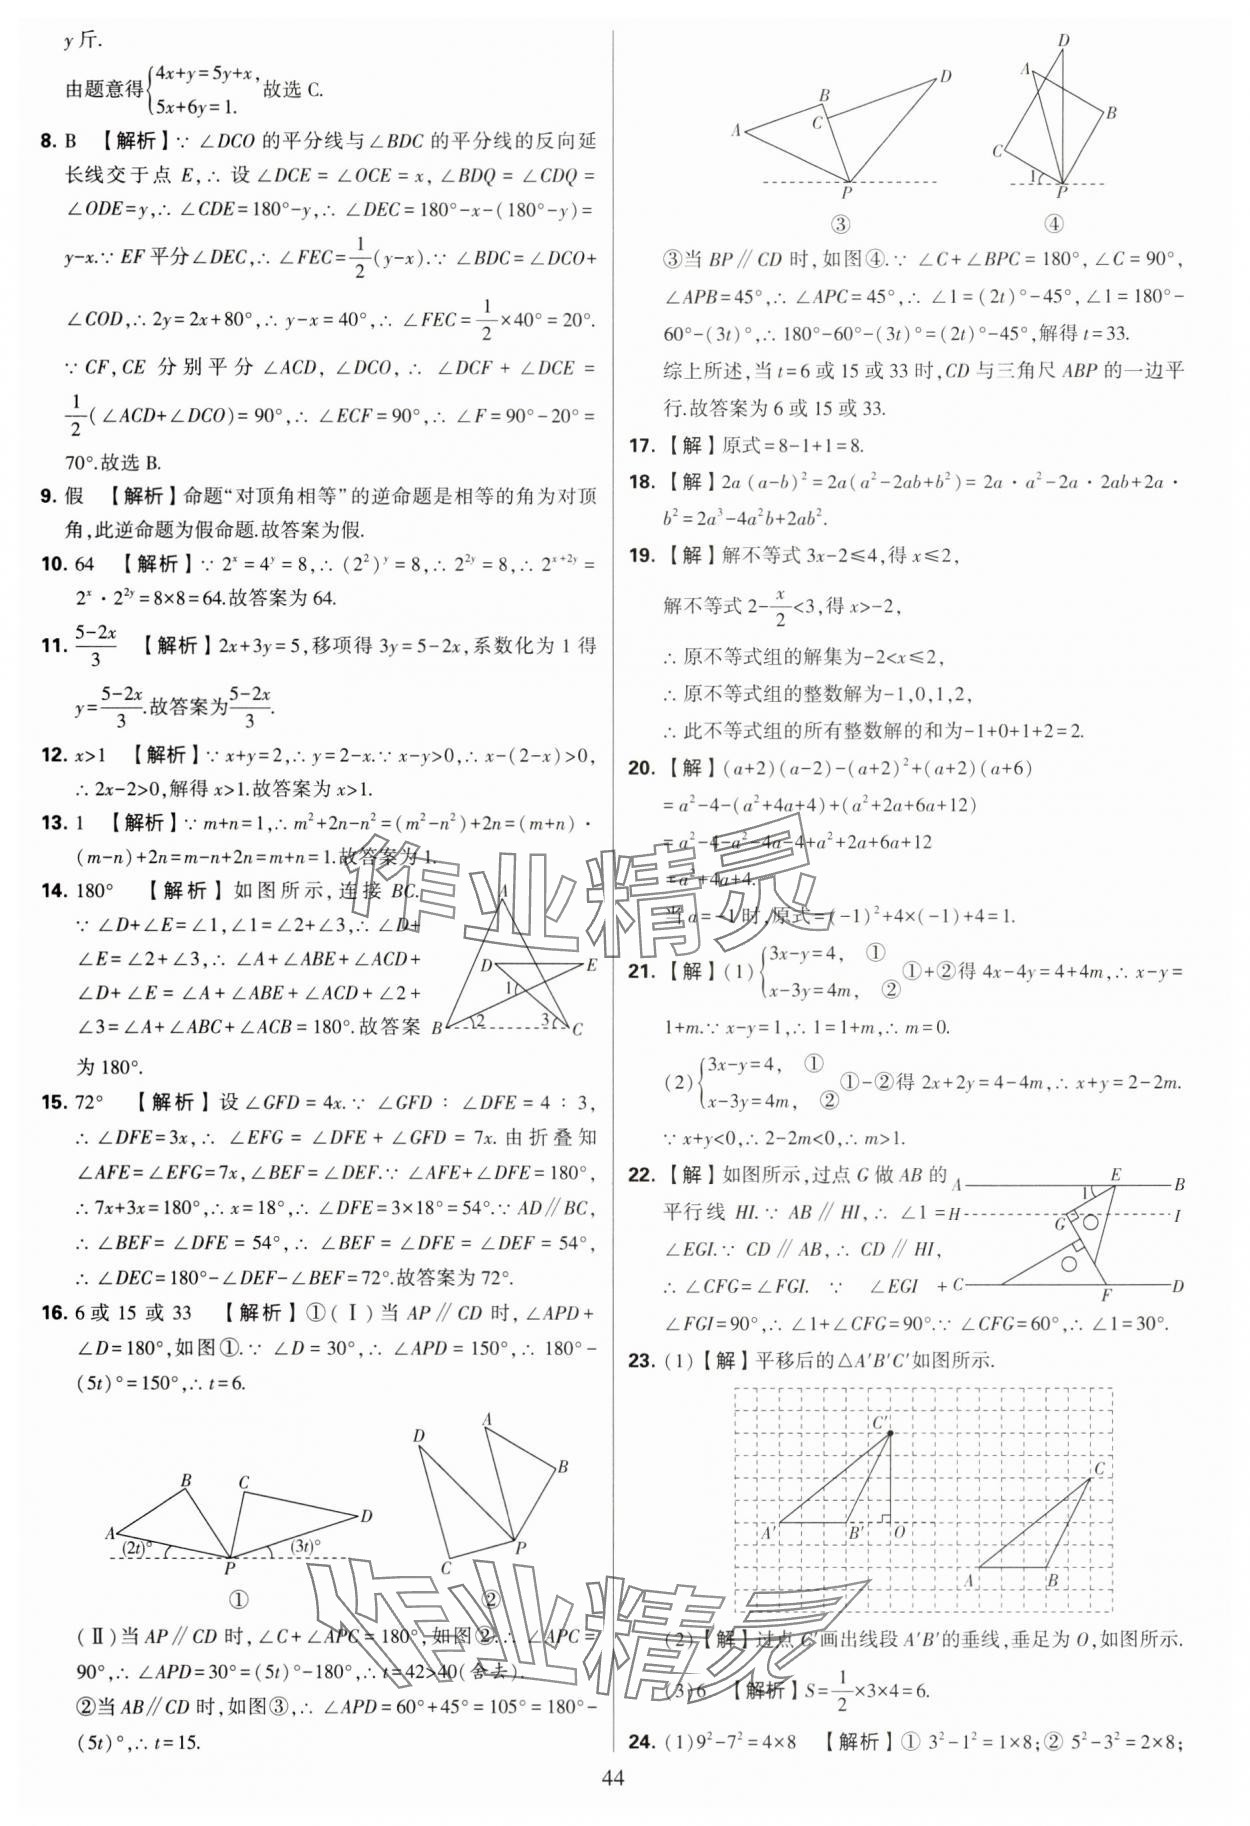 y斤.
由题意得{4x+y=5y+x, 5x+6y=1. 故选 C.
8. B 【解析】∵ ∠DCO 的平分线与∠BDC 的平分线的反向延
长线交于点 E,∴ 设∠DCE=∠OCE=x,∠BDQ=∠CDQ=
∠ODE=y,∴ ∠CDE=180°-y,∴ ∠DEC=180°-x-(180°-y)=
y-x.∵ EF 平分∠DEC,∴ ∠FEC=1/2(y-x).∵ ∠BDC=∠DCO+
∠COD,∴ 2y=2x+80°,∴ y-x=40°,∴ ∠FEC=1/2×40°=20°.
∵ CF,CE 分别平分∠ACD,∠DCO,∴ ∠DCF+∠DCE=
1/2(∠ACD+∠DCO)=90°,∴ ∠ECF=90°,∴ ∠F=90°-20°=
70°.故选 B.
9. 假 【解析】命题“对顶角相等”的逆命题是相等的角为对顶
角,此逆命题为假命题.故答案为假.
10. 64 【解析】∵ 2^x=4^y=8,∴ (2²)^y=8,∴ 2^{2y}=8,∴ 2^{x+2y}=
2^x·2^{2y}=8×8=64.故答案为 64.
11. (5-2x)/3 【解析】2x+3y=5,移项得 3y=5-2x,系数化为 1 得
y=(5-2x)/3.故答案为(5-2x)/3.
12. x>1 【解析】∵ x+y=2,∴ y=2-x.∵ x-y>0,∴ x-(2-x)>0,
∴ 2x-2>0,解得 x>1.故答案为 x>1.
13. 1 【解析】∵ m+n=1,∴ m²+2n-n²=(m²-n²)+2n=(m+n)·
(m-n)+2n=m-n+2n=m+n=1.故答案为 1.
14. 180° 【解析】如图所示,连接 BC.
∵ ∠D+∠E=∠1,∠1=∠2+∠3,∴ ∠D+
∠E=∠2+∠3,∴ ∠A+∠ABE+∠ACD+
∠D+∠E=∠A+∠ABE+∠ACD+∠2+
∠3=∠A+∠ABC+∠ACB=180°.故答案
为 180°.
A
D E
1
B 2 3 C
15. 72° 【解析】设∠GFD=4x.∵ ∠GFD∶∠DFE=4∶3,
∴ ∠DFE=3x,∴ ∠EFG=∠DFE+∠GFD=7x.由折叠知
∠AFE=∠EFG=7x,∠BEF=∠DEF.∵ ∠AFE+∠DFE=180°,
∴ 7x+3x=180°,∴ x=18°,∴ ∠DFE=3×18°=54°.∵ AD∥BC,
∴ ∠BEF=∠DFE=54°,∴ ∠BEF=∠DFE=∠DEF=54°,
∴ ∠DEC=180°-∠DEF-∠BEF=72°.故答案为 72°.
16. 6 或 15 或 33 【解析】①(Ⅰ)当 AP∥CD 时,∠APD+
∠D=180°,如图①.∵ ∠D=30°,∴ ∠APD=150°,∴ 180°-
(5t)°=150°,∴ t=6.
A B C D (2t)° (3t)° P
①
D A B C P
②
(Ⅱ)当 AP∥CD 时,∠C+∠APC=180°,如图②.∴ ∠APC=
90°,∴ ∠APD=30°=(5t)°-180°,∴ t=42>40(舍去).
②当 AB∥CD 时,如图③,∴ ∠APD=60°+45°=105°=180°-
(5t)°,∴ t=15.
A B C D P
③
D A B C 1 P
④
③当 BP∥CD 时,如图④.∵ ∠C+∠BPC=180°,∠C=90°,
∠APB=45°,∴ ∠APC=45°,∴ ∠1=(2t)°-45°,∠1=180°-
60°-(3t)°,∴ 180°-60°-(3t)°=(2t)°-45°,解得 t=33.
综上所述,当 t=6 或 15 或 33 时,CD 与三角尺 ABP 的一边平
行.故答案为 6 或 15 或 33.
17. 【解】原式=8-1+1=8.
18. 【解】2a(a-b)²=2a(a²-2ab+b²)=2a·a²-2a·2ab+2a·
b²=2a³-4a²b+2ab².
19. 【解】解不等式 3x-2≤4,得 x≤2,
解不等式 2-x/2<3,得 x>-2,
∴ 原不等式组的解集为-2<x≤2,
∴ 原不等式组的整数解为-1,0,1,2,
∴ 此不等式组的所有整数解的和为-1+0+1+2=2.
20. 【解】(a+2)(a-2)-(a+2)²+(a+2)(a+6)
=a²-4-(a²+4a+4)+(a²+2a+6a+12)
=a²-4-a²-4a-4+a²+2a+6a+12
=a²+4a+4.
当 a=-1 时,原式=(-1)²+4×(-1)+4=1.
21. 【解】(1){3x-y=4, ① x-3y=4m, ② ①+②得 4x-4y=4+4m,∴ x-y=
1+m.∵ x-y=1,∴ 1=1+m,∴ m=0.
(2){3x-y=4, ① x-3y=4m, ② ①-②得 2x+2y=4-4m,∴ x+y=2-2m.
∵ x+y<0,∴ 2-2m<0,∴ m>1.
22. 【解】如图所示,过点 G 做 AB 的
平行线 HI.∵ AB∥HI,∴ ∠1=
∠EGI.∵ CD∥AB,∴ CD∥HI,
∴ ∠CFG=∠FGI. ∵ ∠EGI+
∠FGI=90°,∴ ∠1+∠CFG=90°.∵ ∠CFG=60°,∴ ∠1=30°.
A E B
1
H G I
C F D
23. (1)【解】平移后的△A′B′C′如图所示.
C′ C
A′ B′ O
A B
(2)【解】过点 C′画出线段 A′B′的垂线,垂足为 O,如图所示.
(3)6 【解析】S=1/2×3×4=6.
24. (1)9²-7²=4×8 【解析】① 3²-1²=1×8;② 5²-3²=2×8;
44
作业精灵
作业精灵